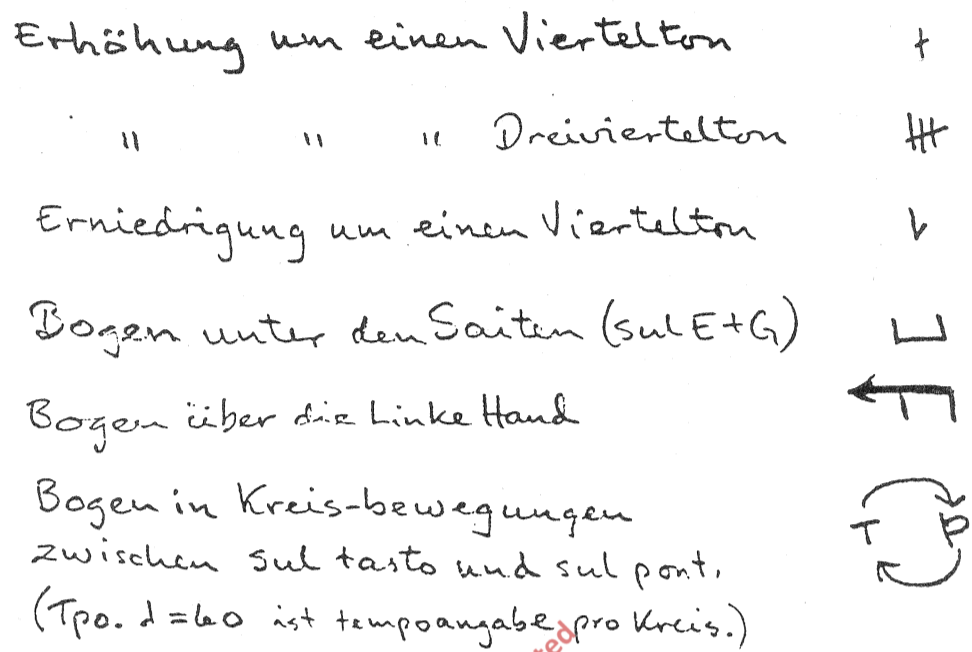 Erhöhung um einen Viertelton +
" " " Dreiviertelton
Erniedrigung um einen Viertelton
Bogen unter den Saiten (sul E+G)
Bogen über die Linke Hand
Bogen in Kreis-bewegungen
T P
zwischen sul tasto und sul pont.
(Tpo. ♩=60 ist tempoangabe pro Kreis.)